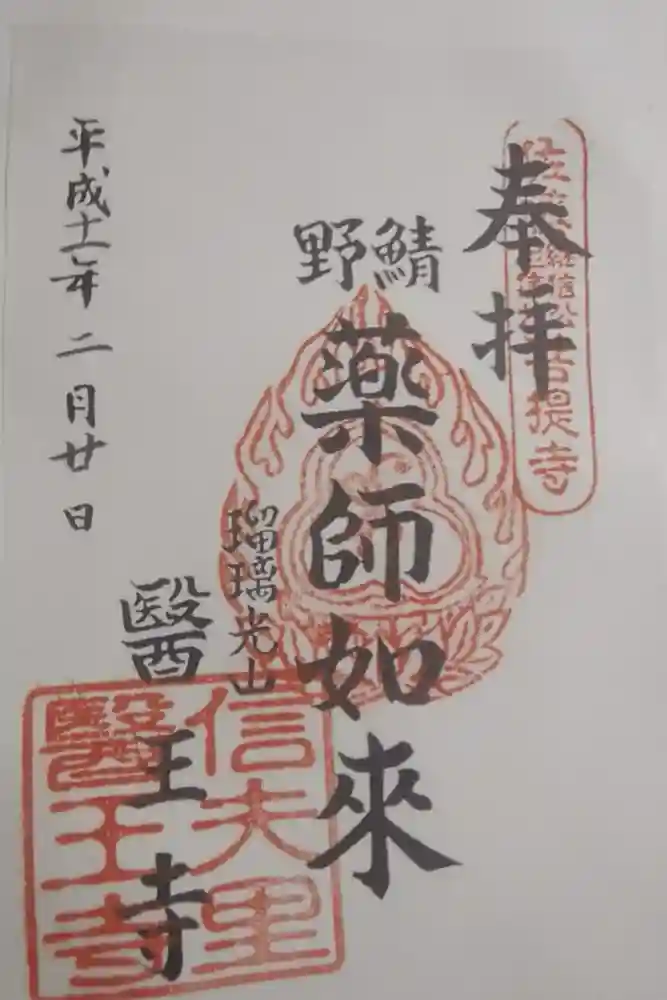 奉拝
菩提寺
鯖野
薬師如來
瑠璃光山
醫王寺
信夫里
醫王寺
平成十一年二月廿日